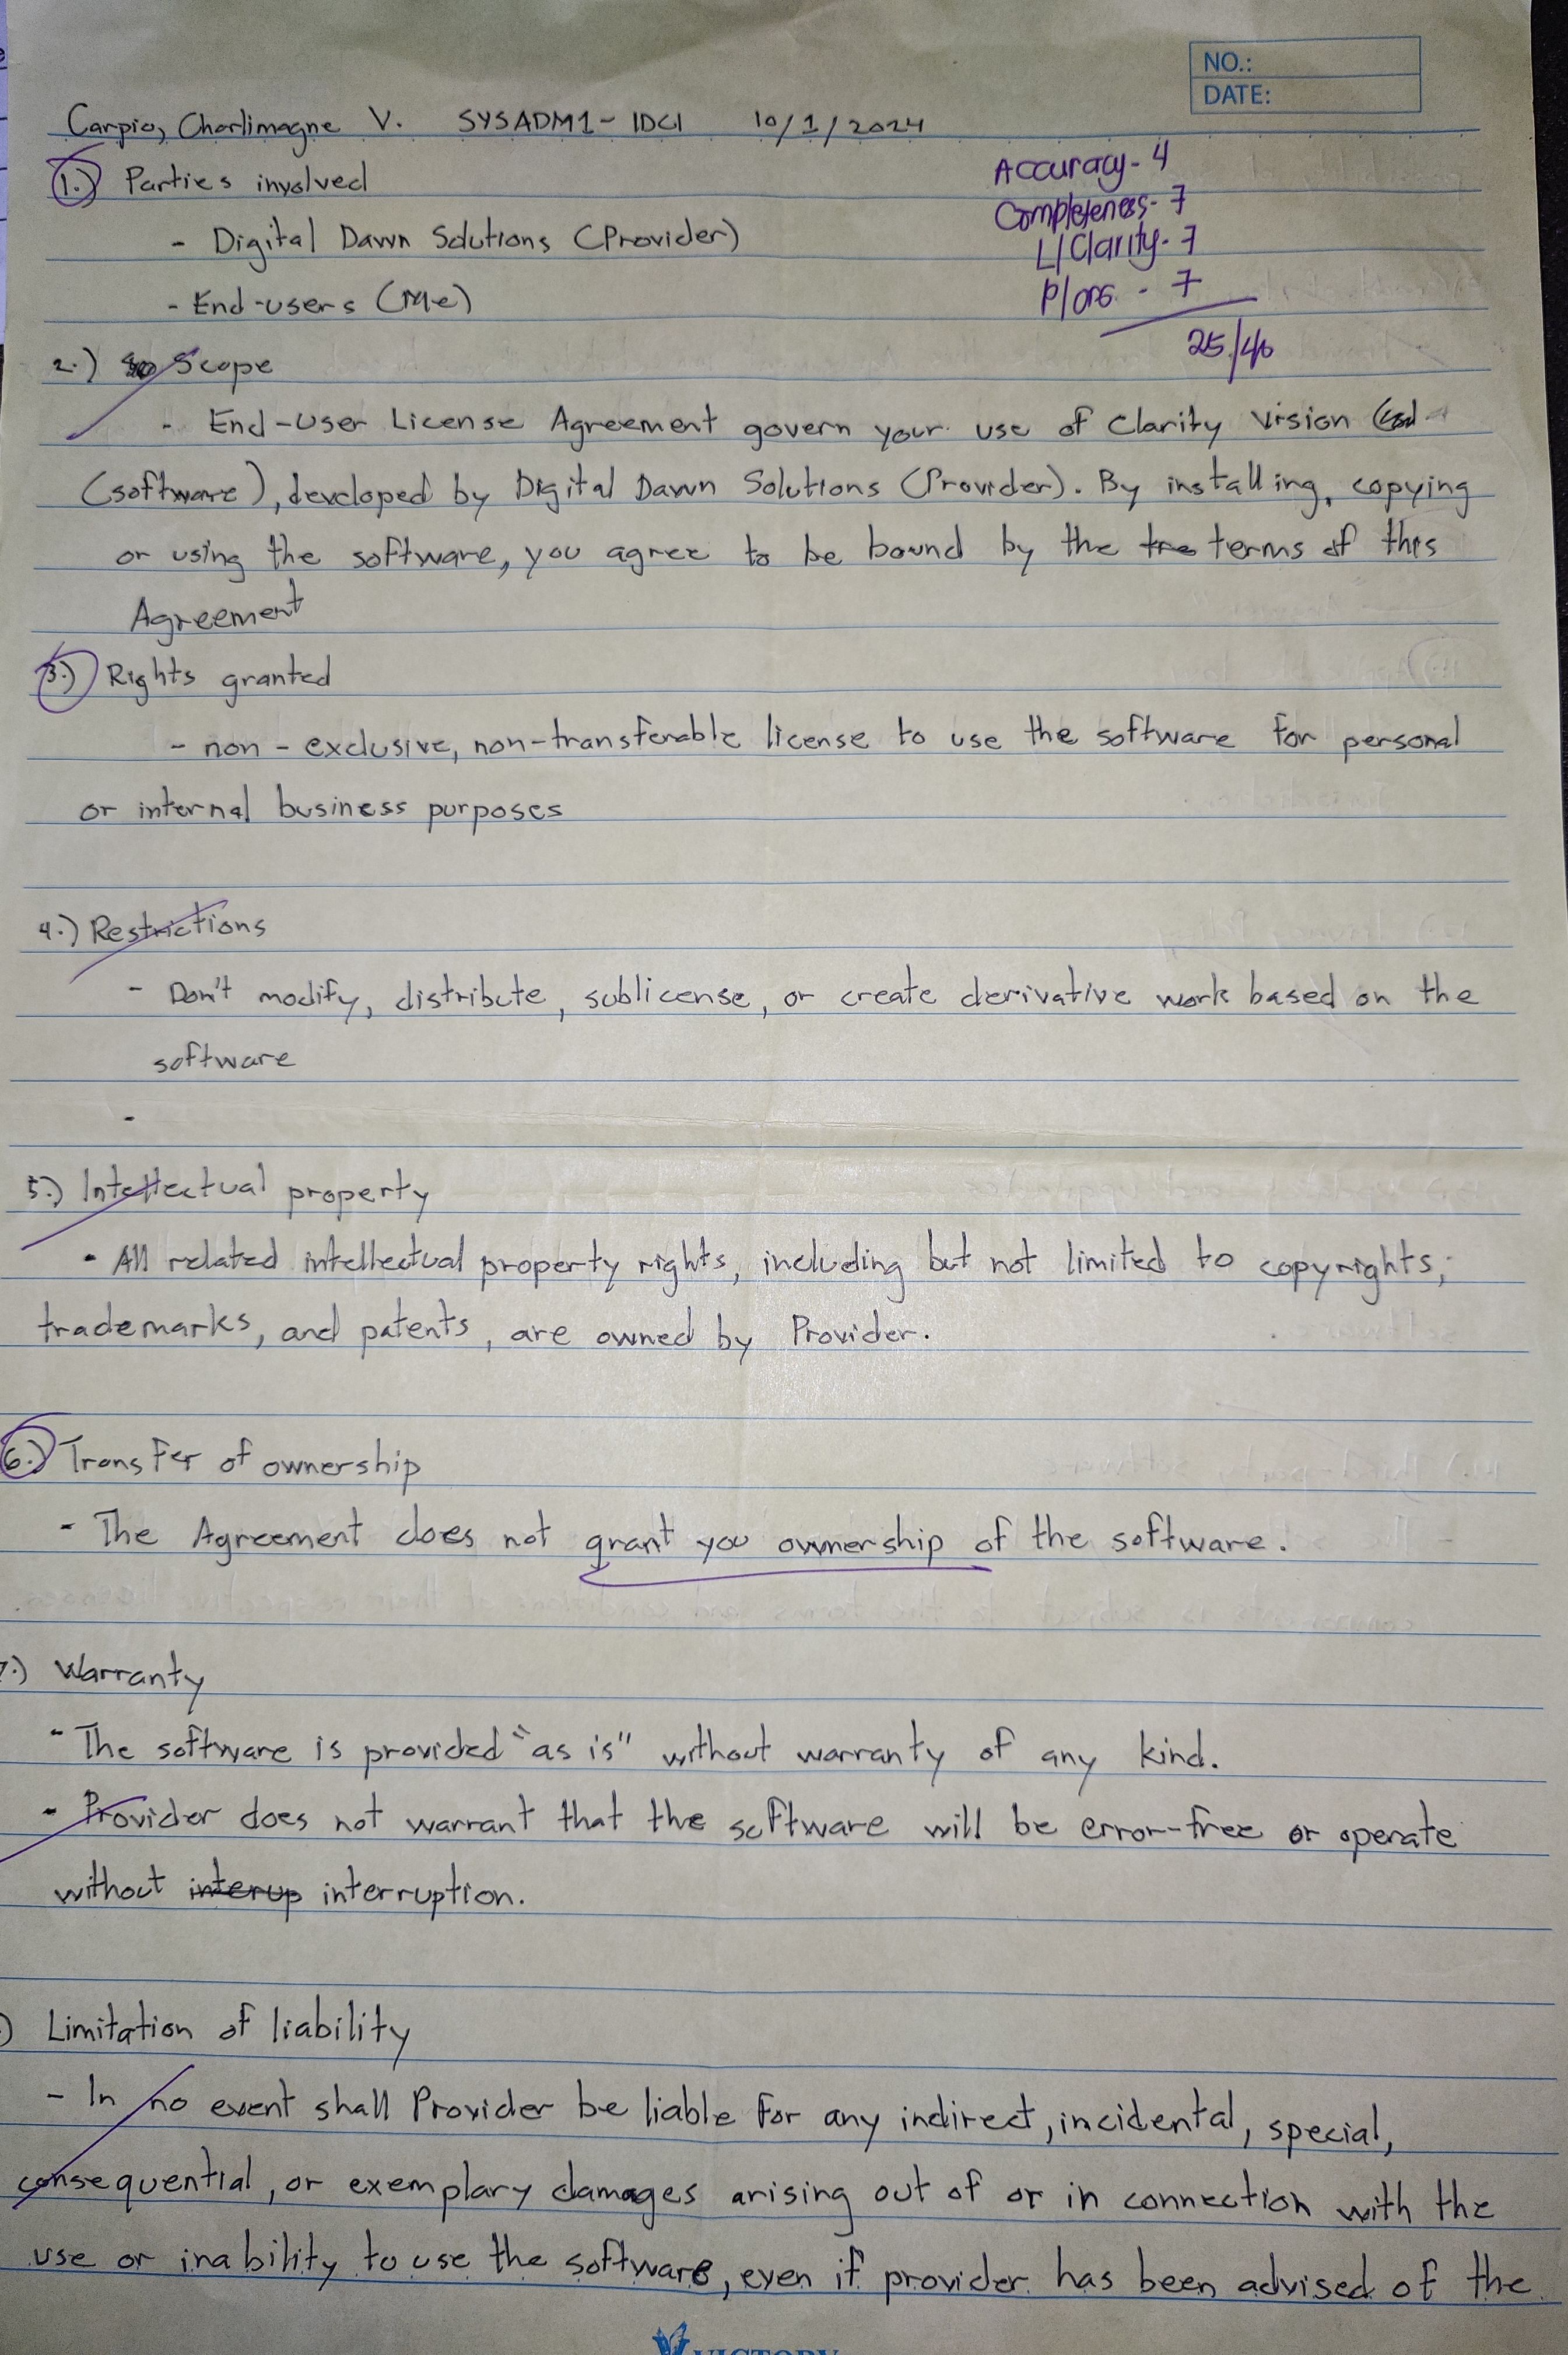 NO.:
DATE:
Carpio, Charlimagne V. SYSADM1- IDC1 10/1/2024
1.) Parties involved
- Digital Dawn Solutions (Provider)
- End-users (Me)
Accuracy- 4
Completeness- 7
L/Clarity- 7
P/org. - 7
25/40
2.) Scope
- End-User License Agreement govern your use of Clarity Vision
(software), developed by Digital Dawn Solutions (Provider). By installing, copying
or using the software, you agree to be bound by the tre terms of this
Agreement
3.) Rights granted
- non-exclusive, non-transferable license to use the software for personal
or internal business purposes
4.) Restrictions
- Don't modify, distribute, sublicense, or create derivative work based on the
software
-
5.) Intellectual property
- All related intellectual property rights, including but not limited to copyrights,
trademarks, and patents, are owned by Provider.
6.) Transfer of ownership
- The Agreement does not grant you ownership of the software.
7.) Warranty
- The software is provided "as is" without warranty of any kind.
- Provider does not warrant that the software will be error-free or operate
without interup interruption.
) Limitation of liability
- In no event shall Provider be liable for any indirect, incidental, special,
consequential, or exemplary damages arising out of or in connection with the
use or inability to use the software, even if provider has been advised of the
VICTORY